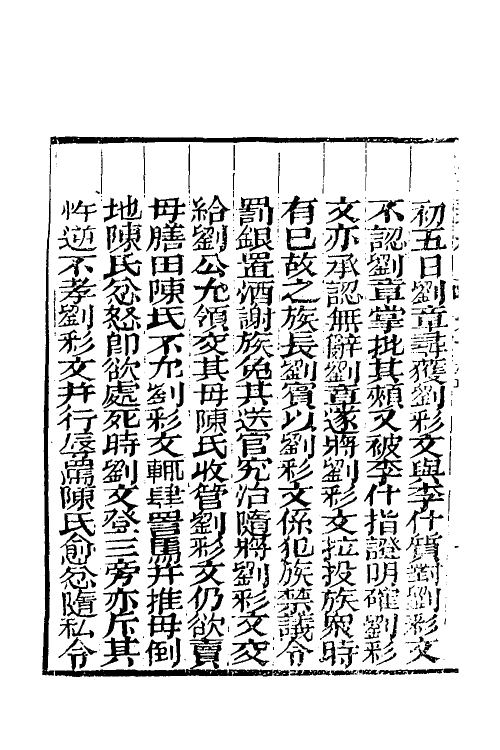 初五日劉章尋獲劉彩文與李什質對劉彩文
不認劉章掌批其頰又被李什指證明確劉彩
文亦承認無辭劉章遂將劉彩文拉投族眾時
有已故之族長劉賓以劉彩文係犯族禁議令
罰銀置酒謝族免其送官究治隨將劉彩文交
給劉公允領交其母陳氏收管劉彩文仍欲賣
母膳田陳氏不允劉彩文輒肆詈罵并推母倒
地陳氏忿怒卽欲處死時劉文登三旁亦斥其
忤逆不孝劉彩文并行辱罵陳氏愈忿隨私令